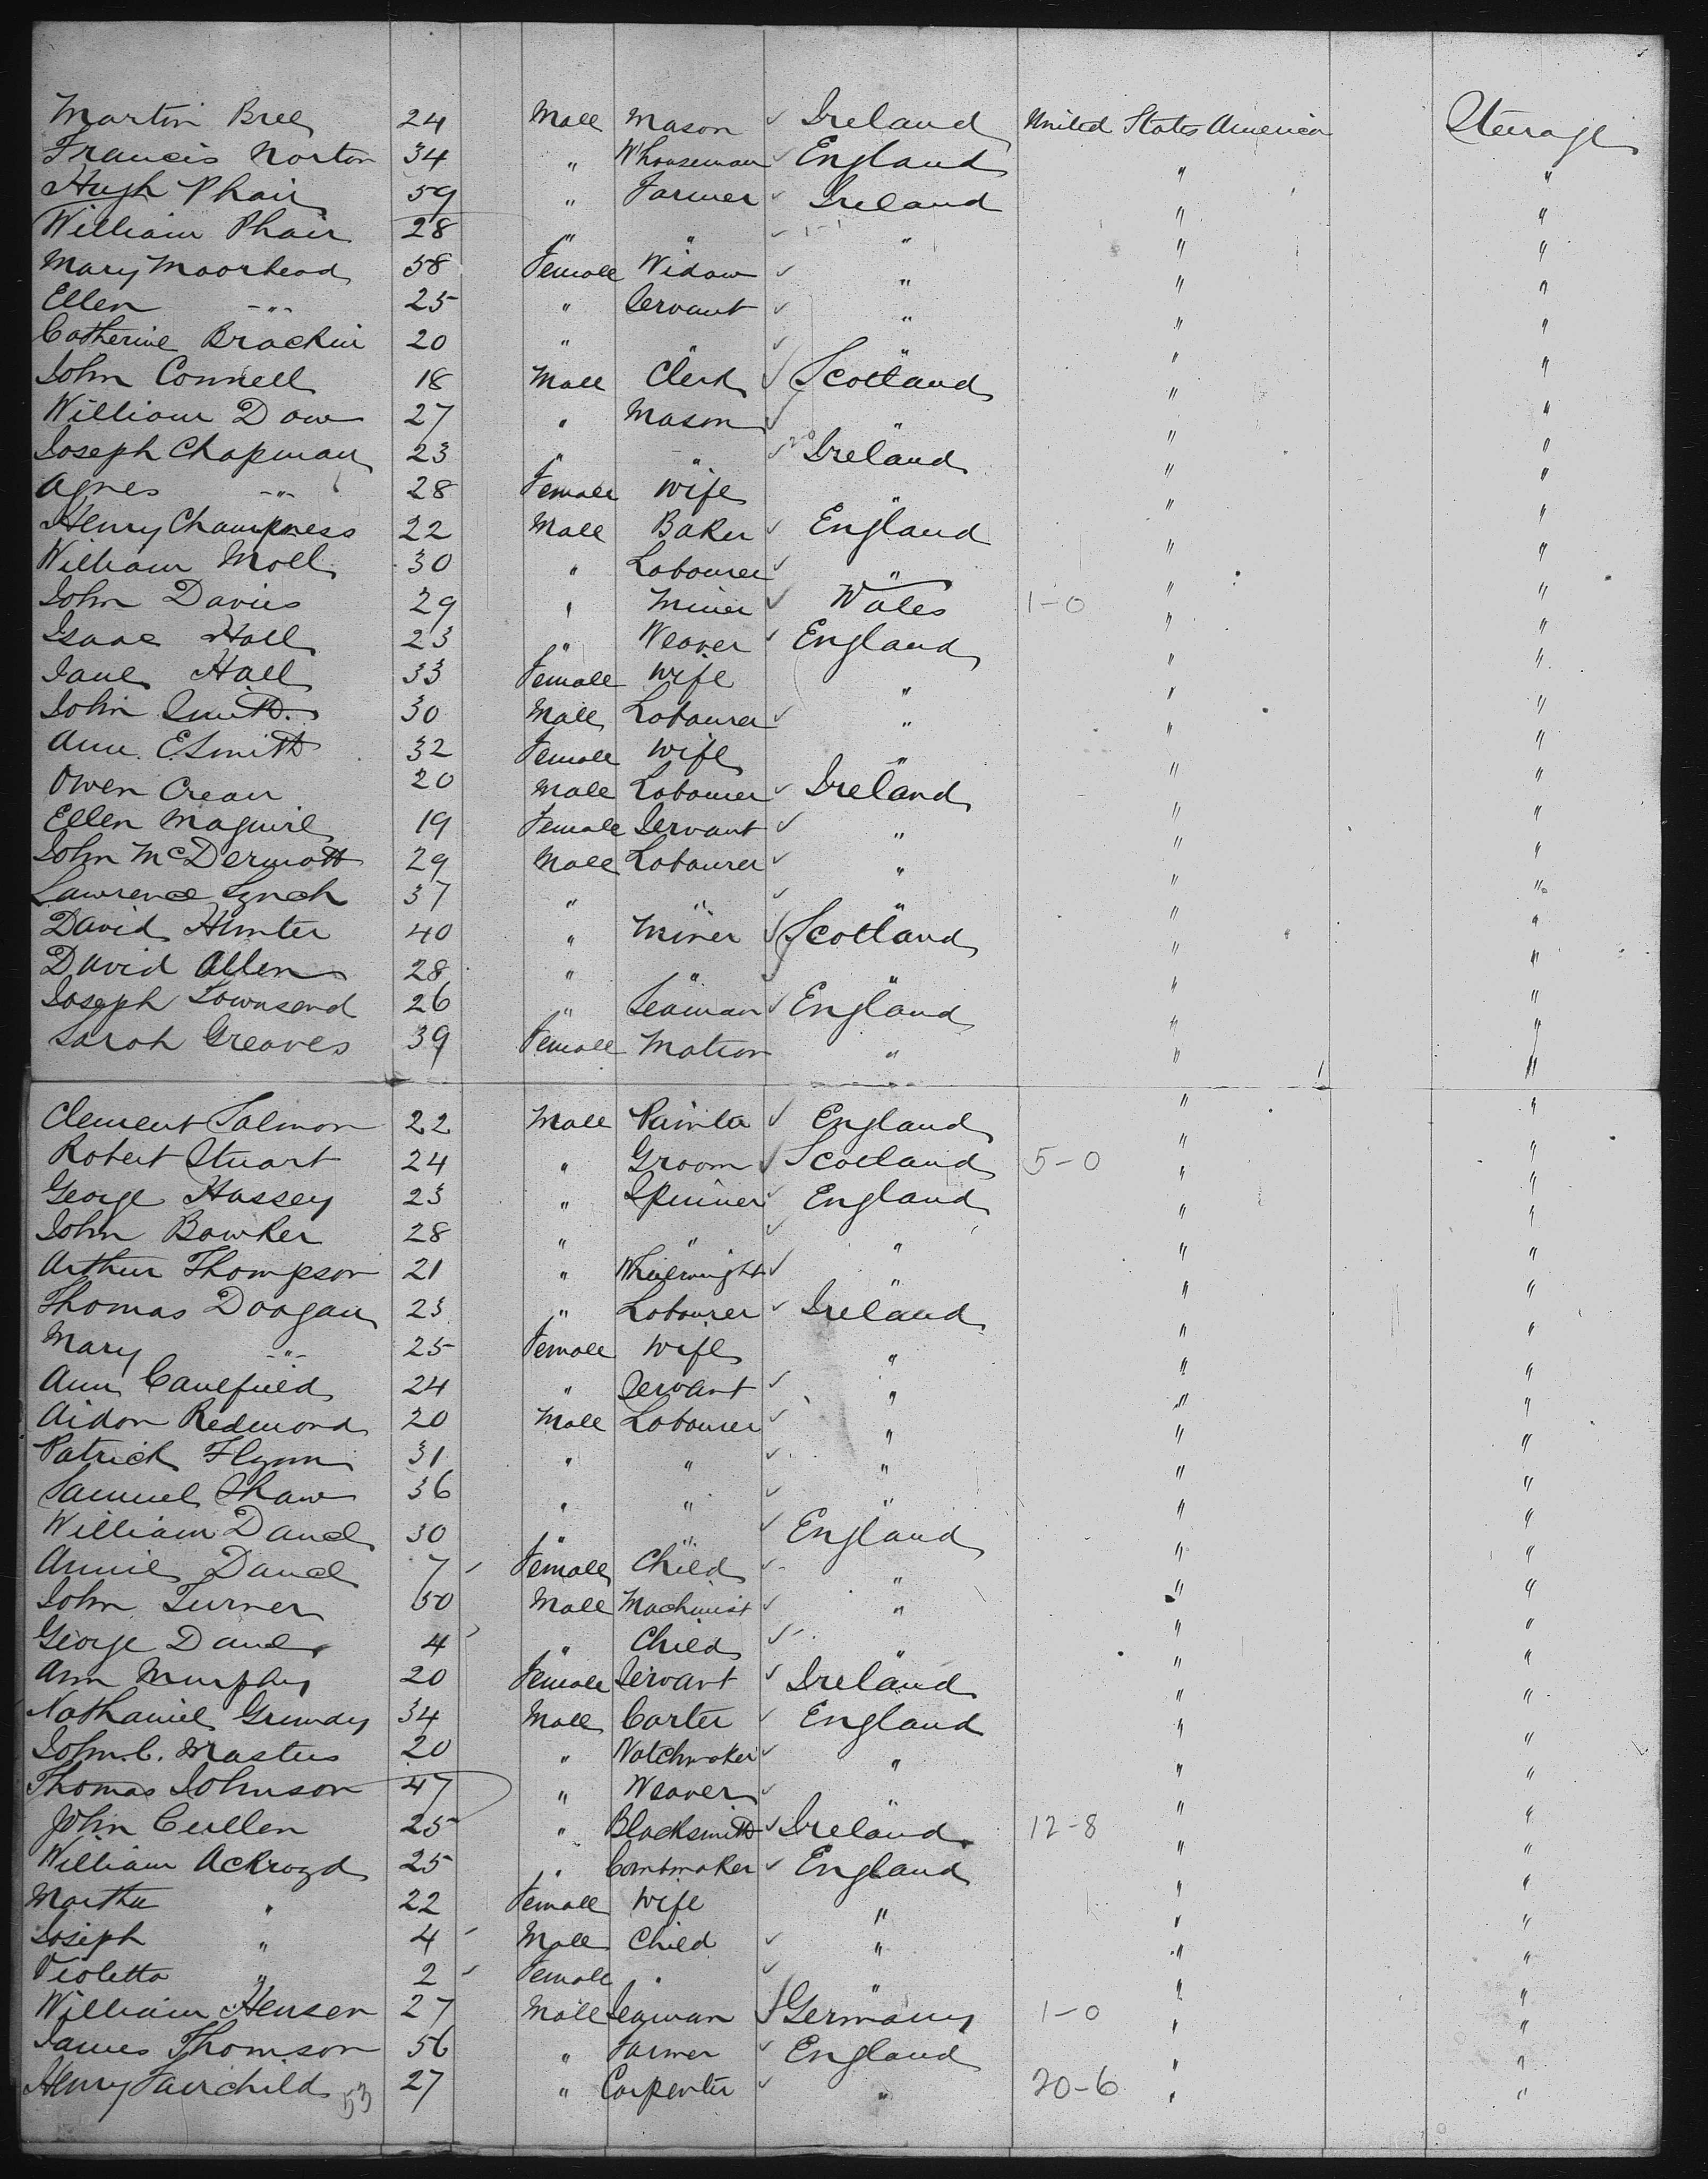 Martin Bree 24 Male Mason ✓ Ireland United States America Steerage
Francis Norton 34 " W'houseman ✓ England " "
Hugh Phair 59 " Farmer ✓ Ireland " "
William Phair 28 " " ✓ " " "
Mary Moorhead 58 Female Widow ✓ " " "
Ellen -"- 25 " Servant ✓ " " "
Catherine Brackin 20 " " ✓ " " "
John Connell 18 Male Clerk ✓ Scotland " "
William Dow 27 " Mason ✓ " " "
Joseph Chapman 23 " " ✓ Ireland " "
Agnes -"- 28 Female Wife " " "
Henry Champness 22 Male Baker ✓ England " "
William Moll 30 " Labourer ✓ " " "
John Davies 29 " Miner ✓ Wales 1-0 " "
Isaac Hall 23 " Weaver ✓ England " "
Jane Hall 33 Female Wife " " "
John Smith 30 Male Labourer ✓ " " "
Ann E. Smith 32 Female Wife " " "
Owen Crean 20 Male Labourer ✓ Ireland " "
Ellen Maguire 19 Female Servant ✓ " " "
John McDermott 29 Male Labourer ✓ " " "
Lawrence Lynch 37 " " ✓ " " "
David Hunter 40 " Miner ✓ Scotland " "
David Allen 28 " " ✓ " " "
Joseph Townsend 26 " Seaman ✓ England " "
Sarah Greaves 39 Female Matron " " "
Clement Salmon 22 Male Painter ✓ England " "
Robert Stuart 24 " Groom ✓ Scotland 5-0 " "
George Hassey 23 " Spinner ✓ England " "
John Bowker 28 " " ✓ " " "
Arthur Thompson 21 " Wheelwright ✓ " " "
Thomas Doogan 23 " Labourer ✓ Ireland " "
Mary -"- 25 Female Wife " " "
Ann Caulfield 24 " Servant ✓ " " "
Aidan Redmond 20 Male Labourer ✓ " " "
Patrick Flynn 31 " " ✓ " " "
Samuel Shaw 36 " " ✓ " " "
William 30 " " ✓ England " "
Annie 7 Female Child ✓ " " "
John Turner 50 Male Machinist ✓ " " "
George 4 " Child ✓ " " "
Ann Murphy 20 Female Servant ✓ Ireland " "
Nathaniel Grundy 34 Male Carter ✓ England " "
John C. Masters 20 " Watchmaker ✓ " " "
Thomas Johnson 47 " Weaver ✓ " " "
John Cullen 25 " Blacksmith ✓ Ireland 12-8 " "
William Ackroyd 25 " Combmaker ✓ England " "
Martha " 22 Female Wife " " "
Joseph " 4 Male Child ✓ " " "
Violetta " 2 Female " ✓ " " "
William Hensen 27 Male Seaman ✓ Germany 1-0 " "
James Thomson 56 " Farmer ✓ England " "
Henry Fairchild 53 27 " Carpenter ✓ " 20-6 " "